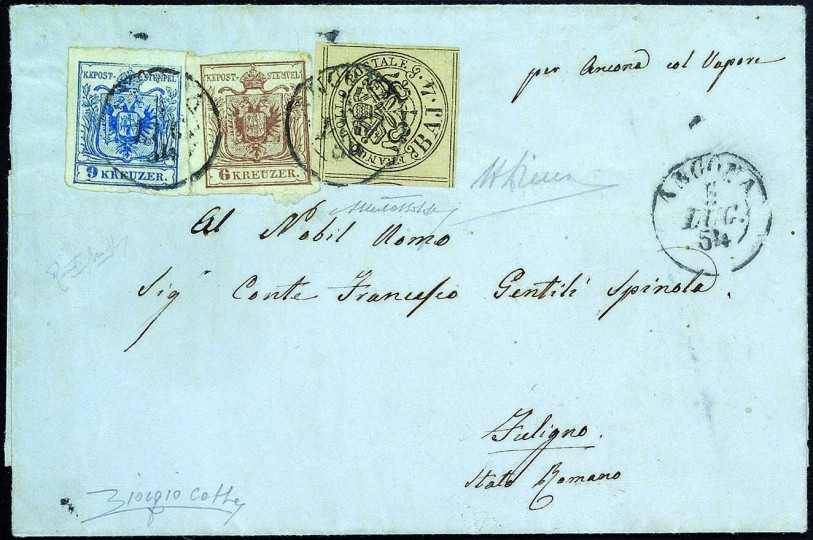 KKPOST-STEMPEL
9 KREUZER.
KKPOST-STEMPEL
6 KREUZER.
FRANCO BOLLO POSTALE
BAJ. 7
per Ancona col Vapore
ANCONA
LUG.
54
Al Nobil Uomo
Sigr Conte Francesco Gentili Spinola.
Fuligno.
Stato Romano
Giorgio Colla